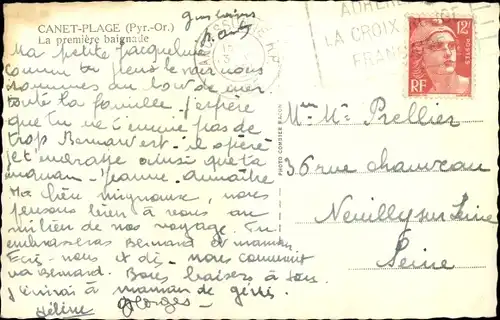 CANET-PLAGE (Pyr.-Or.)
La première baignade
Ma petite Jacqueline
comme tu peux le voir nous
sommes au bord de mer
toute la famille. J'espère
que tu ne t'ennuie pas de
trop Bernard est-il opéré
je t'embrasse ainsi que ta
maman - Jeanne
Ma bien mignonne, nous
pensons bien à vous au
milieu de nos voyage. Tu
embrasseras Bernard et maman
Ecris-nous et dis-nous comment
va Bernard. Bons baisers à tous
J'écrirai à maman de
Hélène Georges -
ADHÉREZ
LA CROIX ROUGE
FRANÇAISE
12F
RF
POSTES
PHOTO COMBIER MACON
Mme Mr Prellier
36 rue chauveau
Neuilly sur Seine
Seine